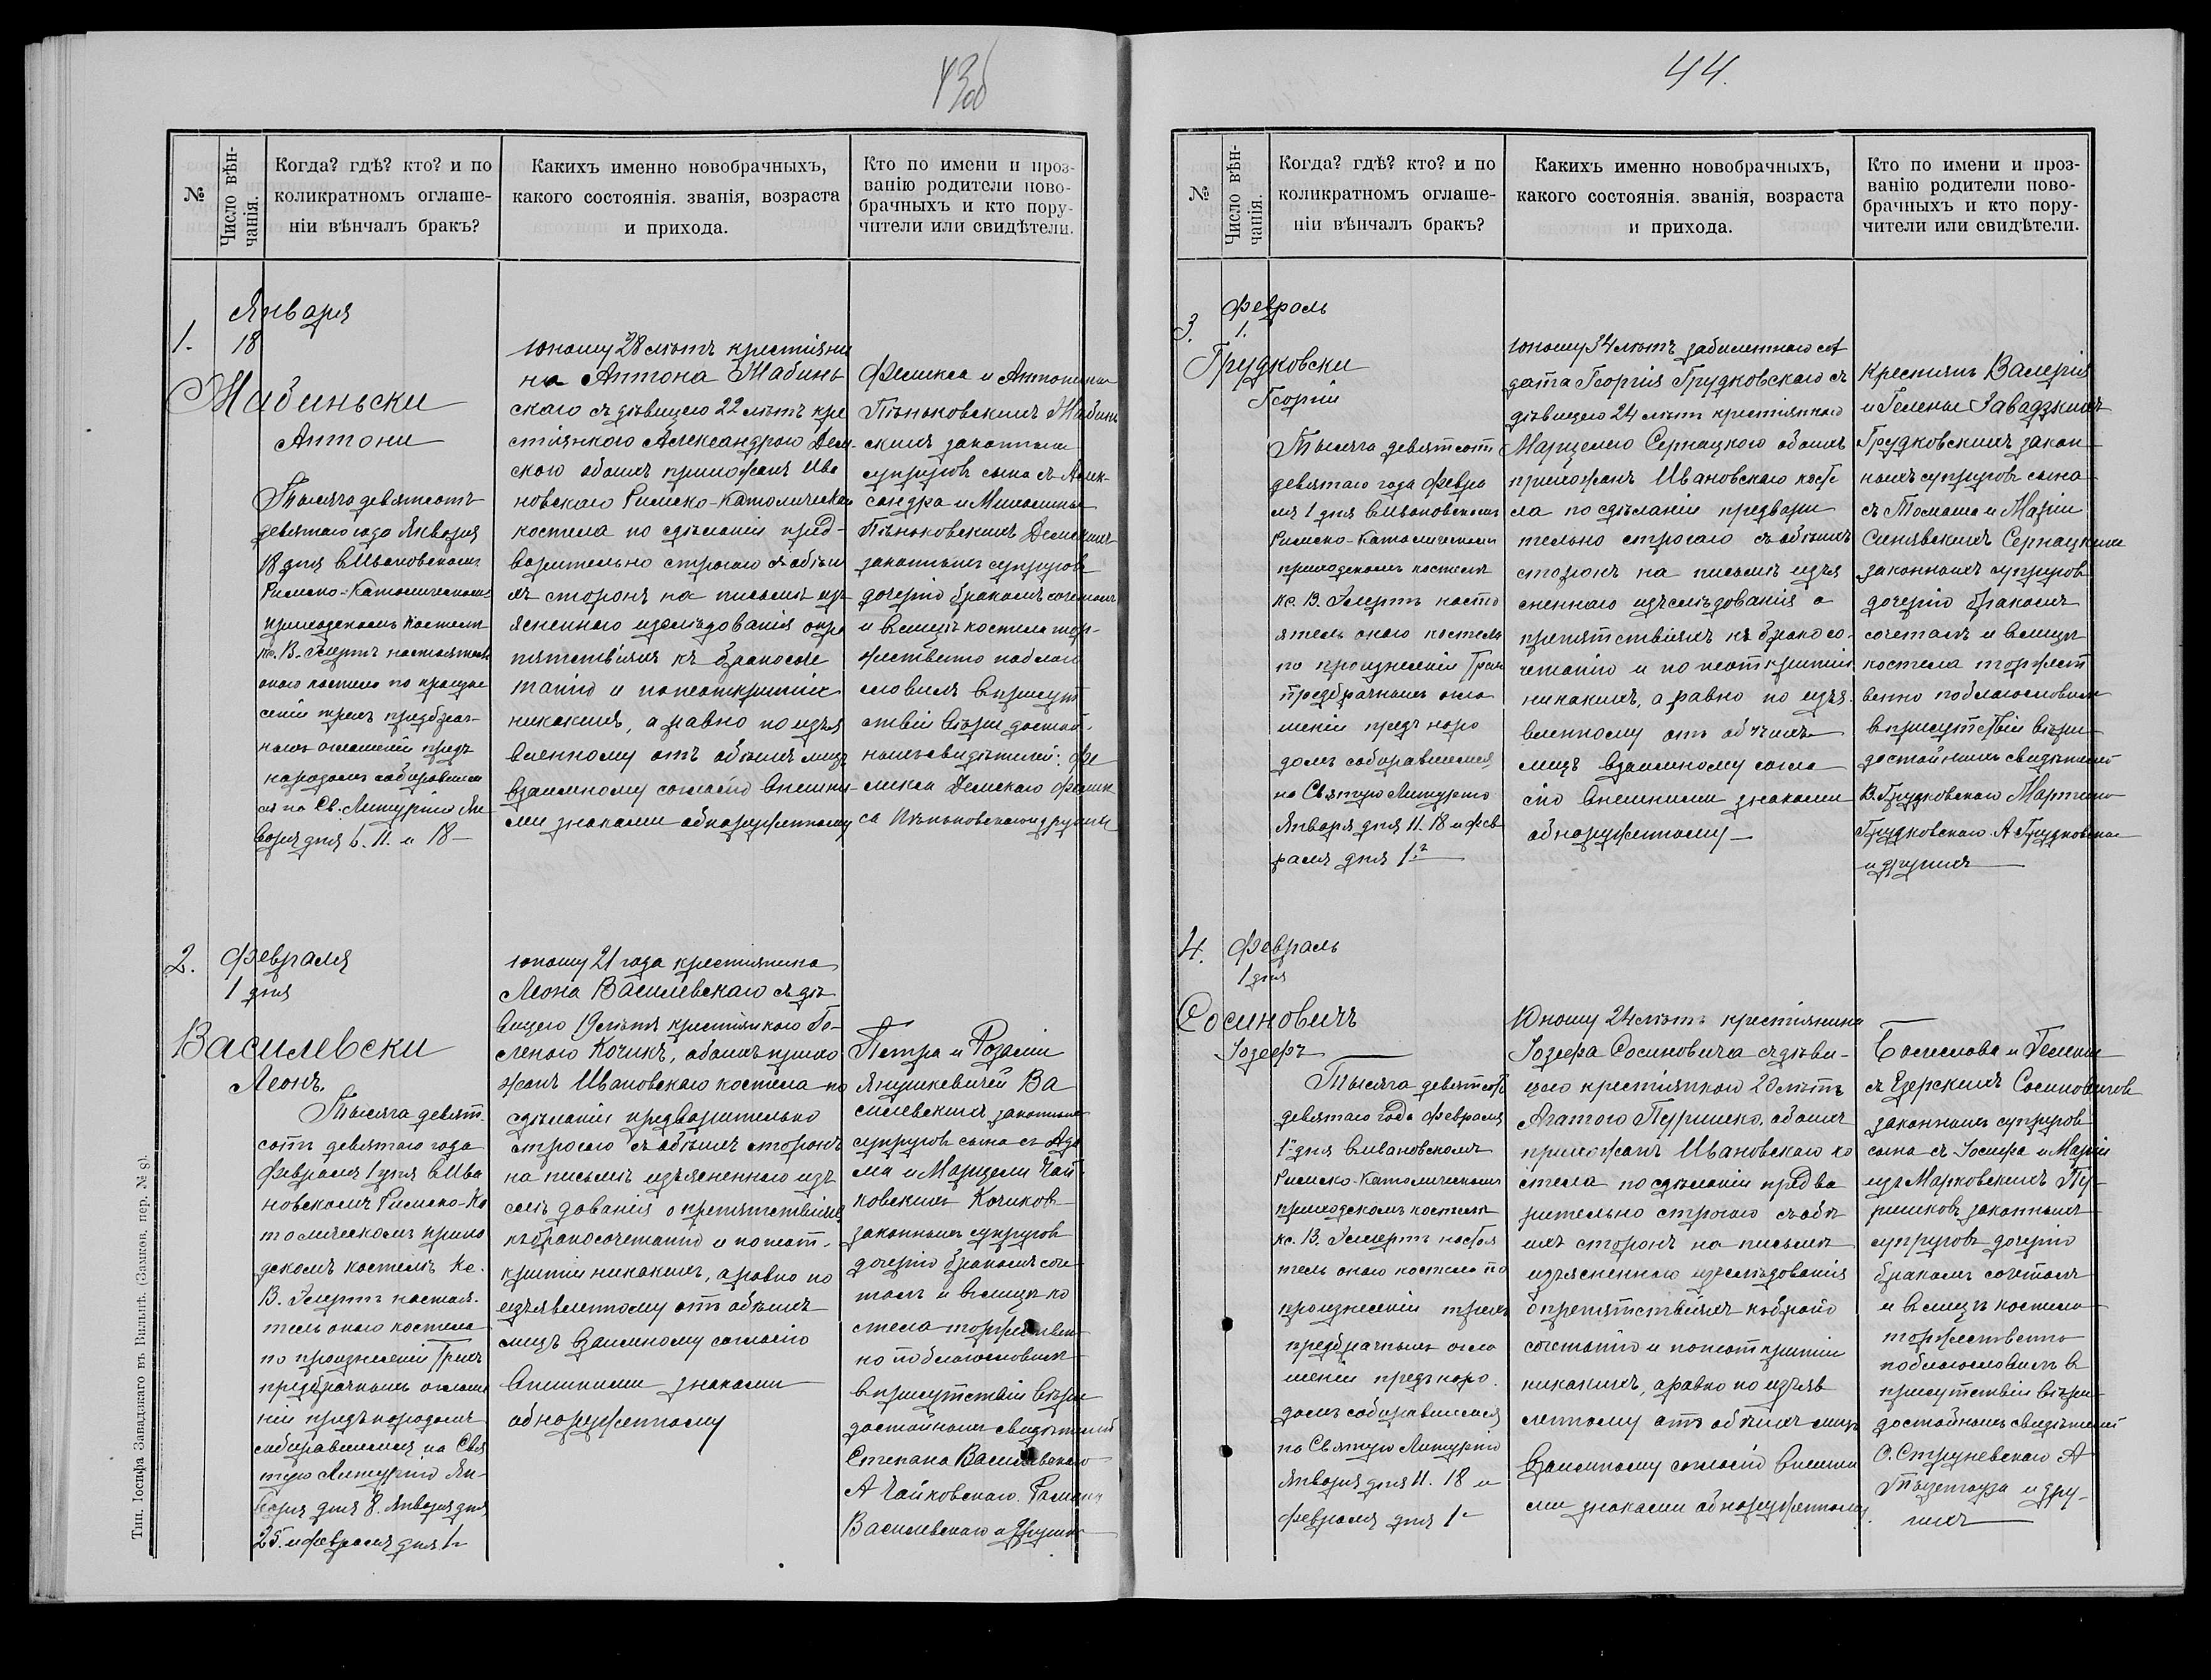 43об
№
Число вѣн-
чанія.
Когда? гдѣ? кто? и по
коликратномъ оглаше-
ніи вѣнчалъ бракъ?
Какихъ именно новобрачныхъ,
какого состоянія. званія, возраста
и прихода.
Кто по имени и проз-
ванію родители ново-
брачныхъ и кто пору-
чители или свидѣтели.
Января
1.
18
Жабиньски
Антони
Тысяча девятсотъ
девятаго года Января
18 дня в Ивановскомъ
Римско-Католическомъ
приходскомъ костелѣ
кс. В. настоятель
онаго костела по произне
сеніи трехъ предбрач-
ныхъ оглашеній предъ
народомъ собиравшим
ся на Св. Литургію Ян
варя дня 6. 11. и 18 —
юношу 28 лѣтъ крестьяни
на Антона Жабинь
скаго съ дѣвицею 22 лѣтъ кре
стьянкою Александрою Дем-
скою обоихъ прихожанъ Ива
новскаго Римско-Католическаго
костела по сдѣланіи пред-
варительно строгаго съ обѣи
хъ сторонъ на письмѣ изъ
ясненнаго изслѣдованія о пре
пятствіяхъ къ бракосоче
танію и по неоткрытіи
никакихъ, а равно по изъя
вленному отъ обѣихъ лицъ
взаимному согласію внешни
ми знаками обнаруженному
Феликса и Антонины
Пѣньковскихъ Жабинь
скихъ законныхъ
супруговъ сына съ Алек-
сандра и
Пѣньковскихъ Демскихъ
законныхъ супруговъ
дочерію бракомъ сочеталъ
и в лицѣ костела тор-
жественно поблаго
словилъ в присут
ствіи вѣри достой.
ныхъ свидѣтелей: Фе
ликса Демскаго Феликса
Пѣньковскаго и другихъ
2.
Февраля
1 дня
Василевски
Леонъ.
Тысяча девят.
сотъ девятаго года
Февраля 1 дня в Ива
новскомъ Римско-Ка
толическомъ прихо
дскомъ костелѣ Кс.
В. настоя.
тель онаго костела
по произнесеніи трехъ
предбрачныхъ оглаше
ній предъ народомъ
собиравшимся на Свя
тую Литургію Ян-
варя дня 8. Января дня
25. и февраля дня 1-
юношу 21 года крестьянина
Леона Василевскаго съ дѣ
вицею 19 лѣтъ крестьянкою Ге-
леною Кочикъ, обоихъ прихо
жанъ Ивановскаго костела по
сдѣланіи предварительно
строгаго съ обѣихъ сторонъ
на письмѣ изъясненнаго изъ
слѣдованія о препятствіяхъ
къ бракосочетанію и по неот-
крытіи никакихъ, а равно по
изъявленному отъ обѣихъ
лицъ взаимному согласію
внешними знаками
обнаруженному
Петра и Розаліи
Янушкевичей Ва
силевскихъ законныхъ
супруговъ сына съ Ада
ма и Марцели Чай
ковскихъ Кочиковъ
законныхъ супруговъ
дочерію бракомъ соче
талъ и в лицѣ ко
стела торжествен
но поблагословилъ
в присутствіи вѣри
достойныхъ свидѣтелей
Степана Василевскаго
А Чайковскаго.
Василевскаго и другихъ
Тип. Іосифа Завадскаго въ Вильнѣ. (Замков. пер. № 8).
44.
№
Число вѣн-
чанія.
Когда? гдѣ? кто? и по
коликратномъ оглаше-
ніи вѣнчалъ бракъ?
Какихъ именно новобрачныхъ,
какого состоянія. званія, возраста
и прихода.
Кто по имени и проз-
ванію родители ново-
брачныхъ и кто пору-
чители или свидѣтели.
Февраль
3.
1.
Грудковски
Георгій
Тысяча девятсотъ
девятаго года Февра
ля 1 дня в Ивановскомъ
Римско-Католическомъ
приходскомъ костелѣ
кс. В. насто
ятель онаго костела
по произнесеніи трехъ
предбрачныхъ огла
шеніи предъ наро
домъ собиравшимся
на Святую Литургію
Января дня 11. 18 и фев
раля дня 1.
юношу 34 лѣтъ
дата Георгія Грудковскаго съ
дѣвицею 24 лѣтъ крестьянкою
Марцелею Сернацкою обоихъ
прихожанъ Ивановскаго косте
ла по сдѣланіи предвари
тельно строгаго съ обѣихъ
сторонъ на письмѣ изъя
сненнаго изъслѣдованія о
препятствіяхъ къ бракосо-
четанію и по неоткрытіи
никакихъ, а равно по изъя.
вленному отъ обѣихъ
лицъ взаимному согла
сію внешними знаками
обнаруженному —
крестьянъ Валерія
и Гелены Завадзкихъ
Грудковскихъ закон
ныхъ супруговъ сына
съ Томаша и Маріи
Синявскихъ Сернацкихъ
законныхъ супруговъ
дочерію бракомъ
сочеталъ и в лицѣ
костела торжест
венно поблагословилъ
в присутствіи вѣри
достойныхъ свидѣтелей
В. Грудковскаго
Грудковскаго. А Грудковскаго
и другихъ
4.
Февраль
1 дня
Сосиновичъ
Іозефъ
Тысяча девятсотъ
девятаго года Февраля
1 дня в Ивановскомъ
Римско-Католическомъ
приходскомъ костелѣ
кс. В. настоя
тель онаго костела по
произнесеніи трехъ
предбрачныхъ огла
шеніи предъ наро.
домъ собиравшимся
на Святую Литургію
Января дня 11. 18 и
Февраля дня 1-
Юношу 24 лѣтъ крестьянина
Іозефа Сосиновича съ дѣви-
цею крестьянкою 20 лѣтъ
Агатою обоихъ
прихожанъ Ивановскаго ко
стела по сдѣланіи предва
рительно строгаго съ обѣ
ихъ сторонъ на письмѣ
изъясненнаго изслѣдованія
о препятствіяхъ къ брако
сочетанію и по неоткрытіи
никакихъ, а равно по изъяв
ленному отъ обѣихъ лицъ
взаимному согласію внешни
ми знаками обнаруженному.
Болеслава и Гелены
съ Езерскихъ Сосиновичовъ
законныхъ супруговъ
сына съ Іосифа и Маріи
изъ Марковскихъ
законныхъ
супруговъ дочерію
бракомъ сочеталъ
и в лицѣ костела
торжественно
поблагословилъ в
присутствіи вѣри
достойныхъ свидѣтелей
О. Струневскаго А
и дру-
гихъ